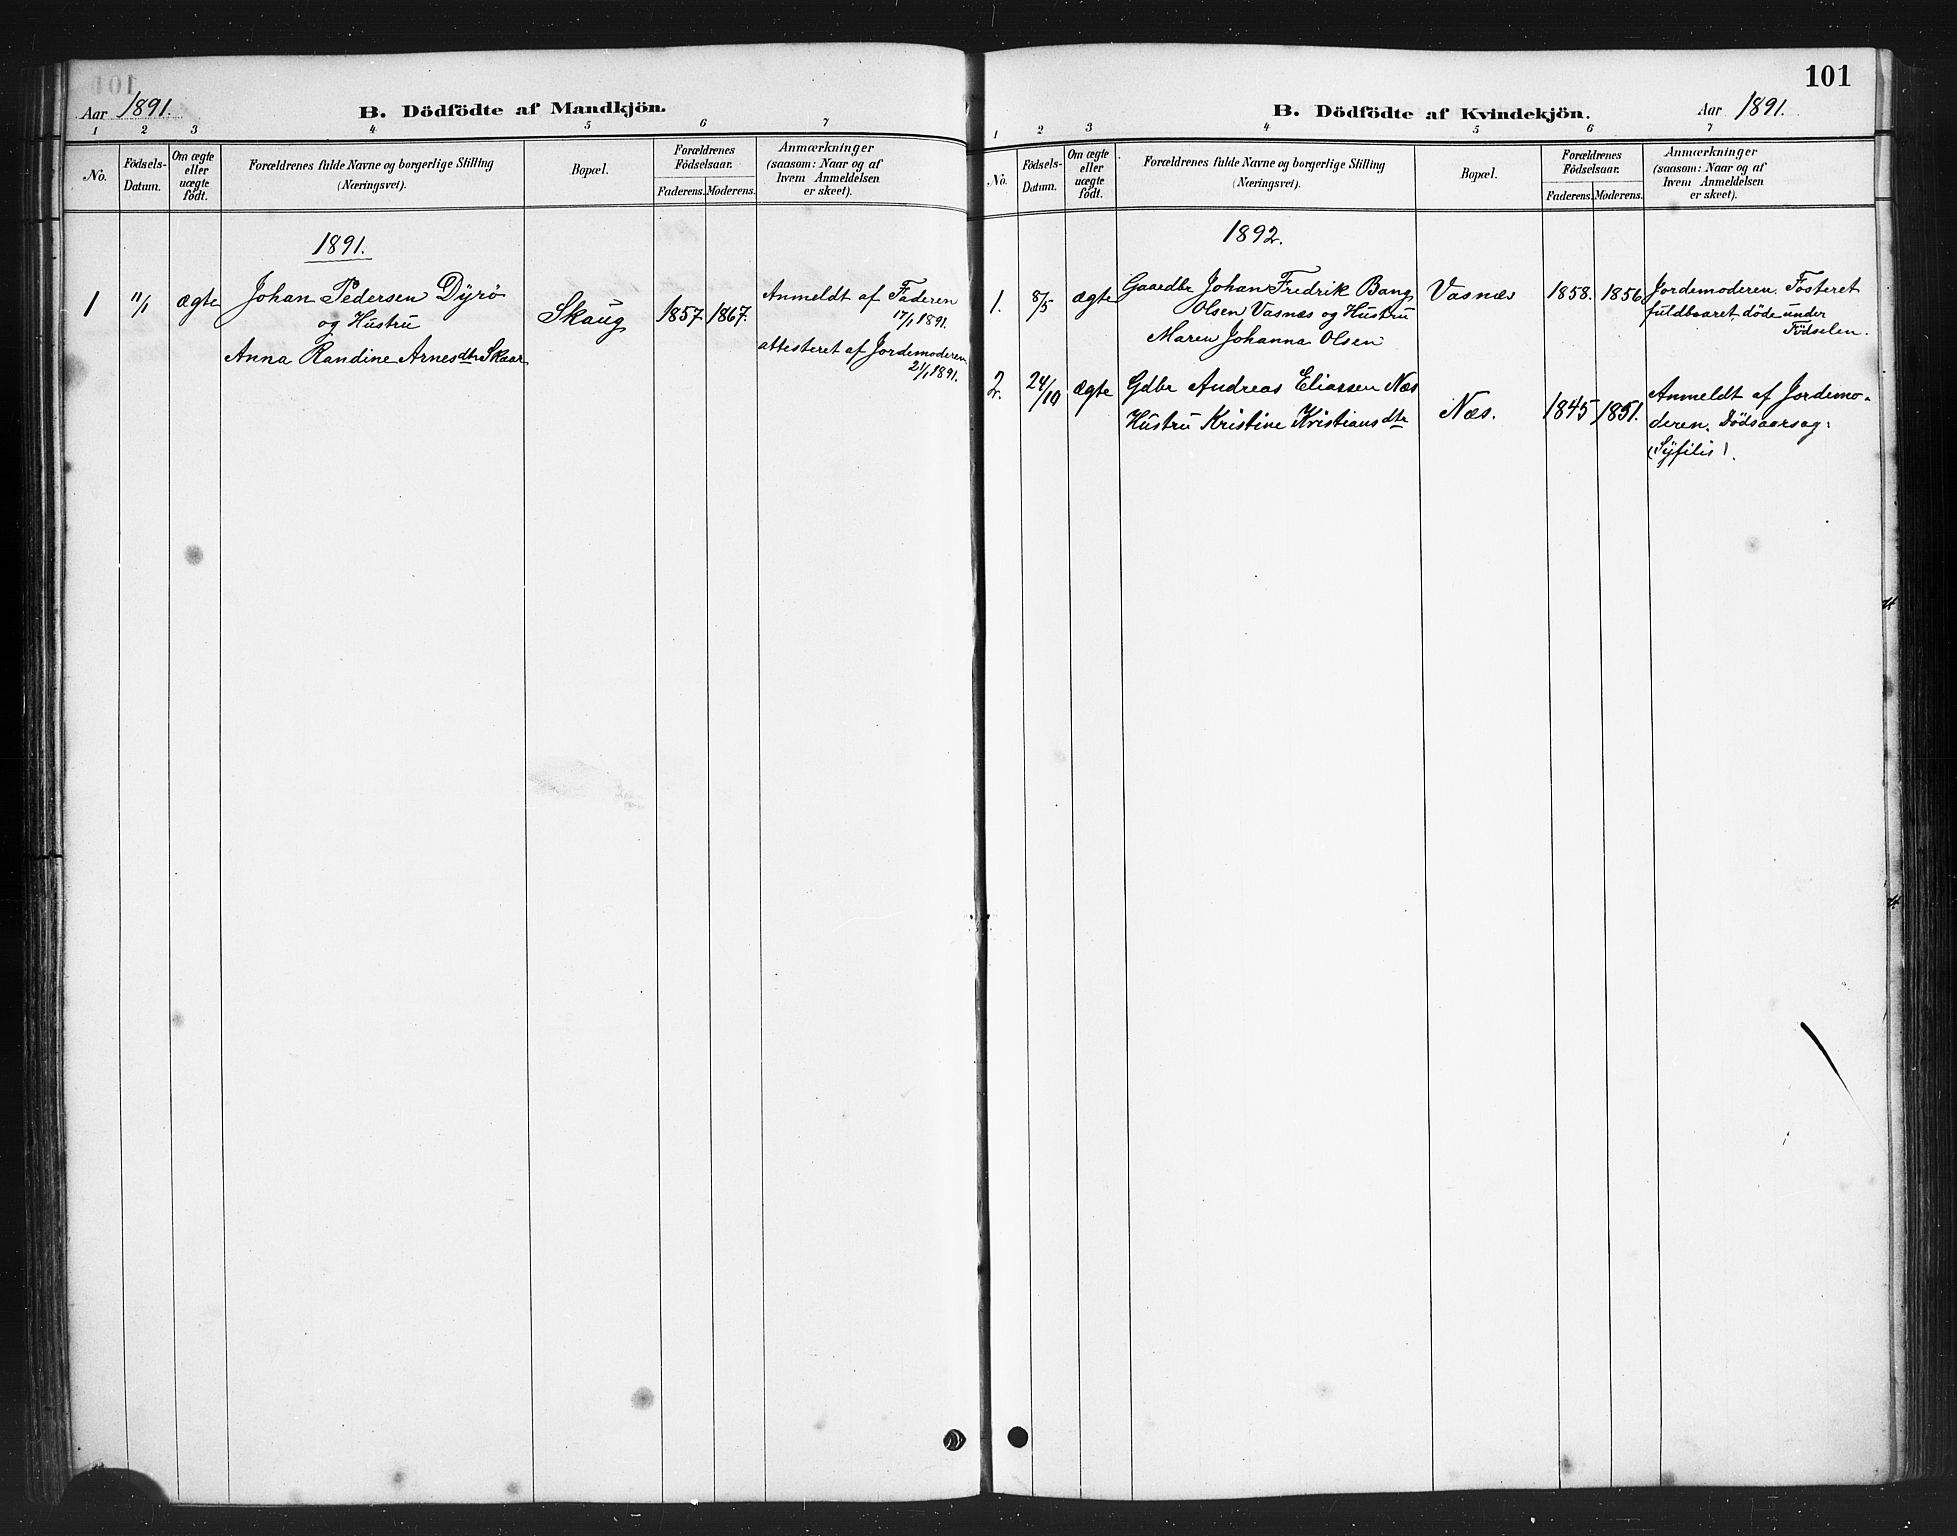 Aar 1891.
B. Dödfödte af Mandkjön.
1 2 3 4 5 6 7
No.
Födsels-
Datum.
Om ægte
eller
uægte
födt.
Forældrenes fulde Navne og borgerlige Stilling
(Næringsvei).
Bopæl.
Forældrenes
Födselsaar.
Faderens. Moderens.
Anmærkninger
(saasom: Naar og af
hvem Anmeldelsen
er skeet).
1891.
1 11/1 ægte Johan Pedersen Dyrø
og Hustru
Anna Randine Arnesdtr Skaar
Skaug 1857 1867.
Anmeldt af Faderen
17/1 1891.
attesteret af Jordemoderen
21/1 1891.
101
B. Dödfödte af Kvindekjön.
Aar 1891.
1 2 3 4 5 6 7
No.
Födsels-
Datum.
Om ægte
eller
uægte
födt.
Forældrenes fulde Navne og borgerlige Stilling
(Næringsvei).
Bopæl.
Forældrenes
Födselsaar.
Faderens. Moderens.
Anmærkninger
(saasom: Naar og af
hvem Anmeldelsen
er skeet).
1892.
1. 8/5 ægte Gaardbr Johan Fredrik Bang
Olsen Vasnæs og Hustru
Maren Johanna Olsen
Vasnæs 1858. 1856
Jordemoderen. Fosteret
fuldbaaret, døde under
Fødselen.
2. 24/10 ægte Gdbr Andreas Eliassen Næs
Hustru Kristine Kristiansdtr
Næs. 1845 1851.
Anmeldt af Jordemo-
deren. Dödsaarsag:
(Syfilis).